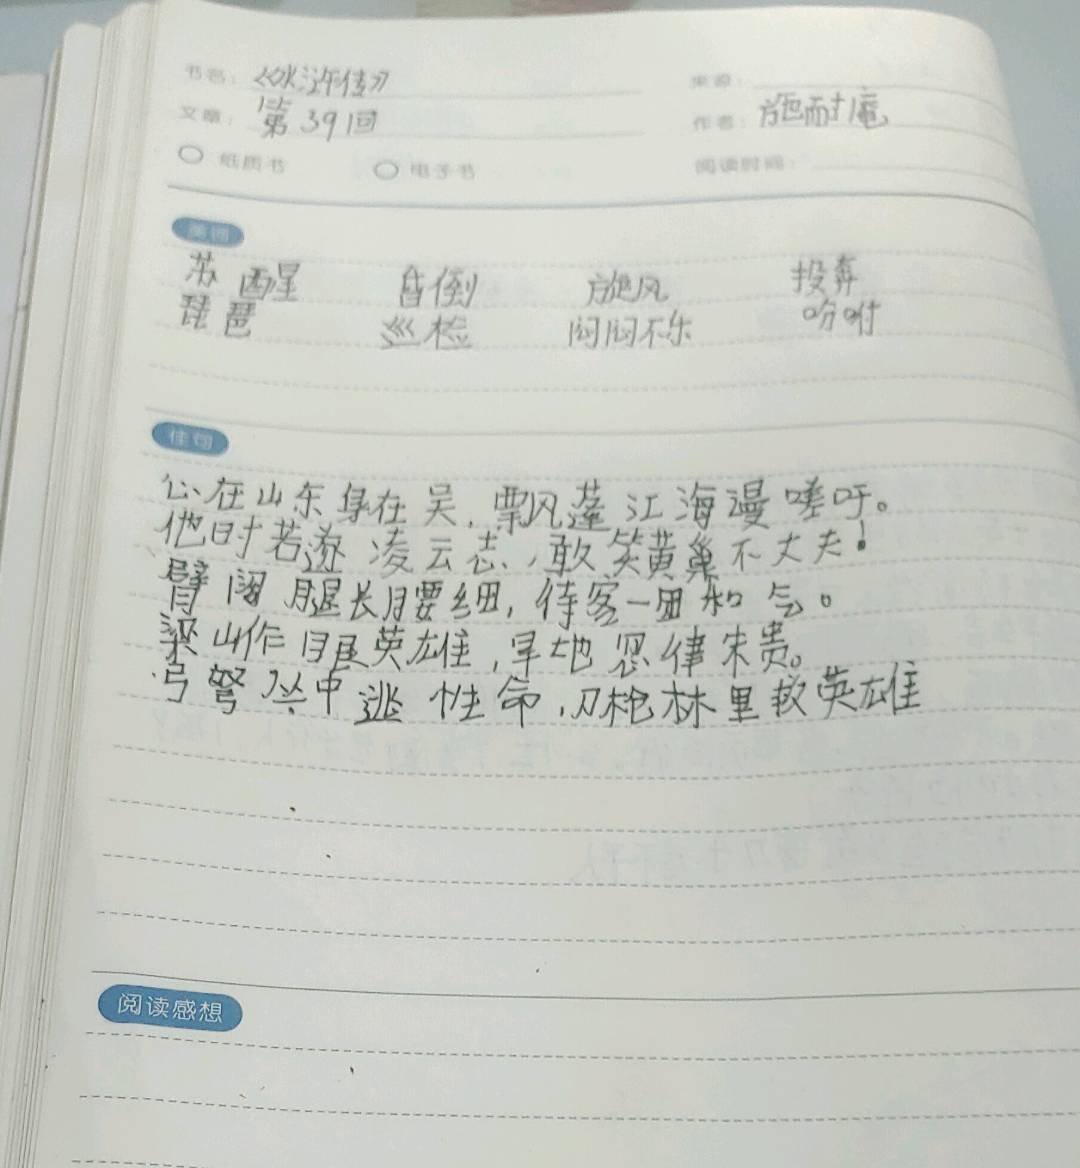 书名：《水浒传》 来源：
文章：第39回 作者：施耐庵
纸质书 电子书 阅读时间：
美词
苏醒 昏倒 旋风 投奔
琵琶 巡检 闷闷不乐 吩咐
佳句
心在山东身在吴，飘风蓬江海漫嗟吁。
他时若遂凌云志，敢笑黄巢不丈夫！
臂阔腿长腰细，待客一团和气。
梁山作眼英雄，旱地忽律朱贵。
弓弩丛中逃性命，刀枪林里救英雄
阅读感想